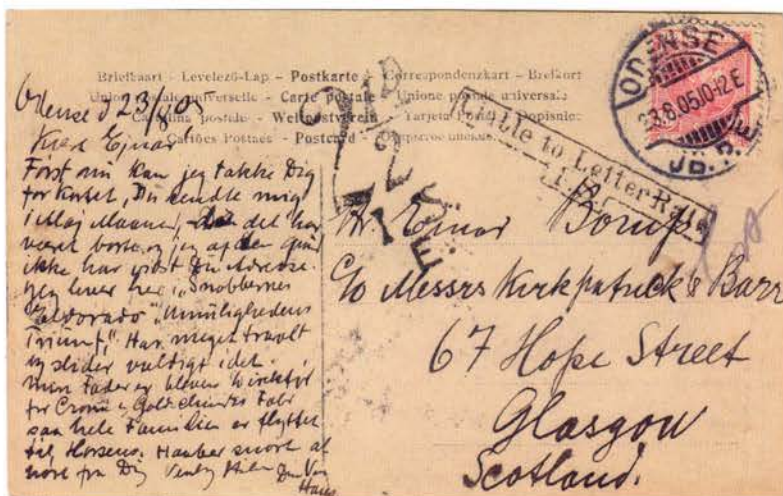 Briefkaart - Levelező-Lap - Postkarte - Correspondenzkart - Brefkort
Union postale universelle - Carte postale - Unione postale universale
Cartolina postale - Weltpostverein - Tarjeta Postal - Dopisnice
Cartões Postaes - Postcard
ODENSE
23.8.05.10-12E
JB.P.E
Liable to Letter Rate
Odense d 23/8 05
Kære Ejnar!
Først nu kan jeg takke Dig
for Kortet, Du sendte mig
i Maj Maaned, det har
været borte, og jeg af den grund
ikke har vidst Din Adresse.
Jeg lever her i „Snobbernes
Eldorado", Umulighedens
Triumf". Har meget travlt
og slider vældigt i det.
Min Fader er bleven Direktør
for Crome & Goldschmidts Fabr
saa hele Familien er flyttet
til Horsens. Haaber snart at
høre fra Dig Venlig Hilsen Din Ven
Hans
Hr. Einar Borup
c/o Messrs Kirkpatrick & Barr
67 Hope Street
Glasgow
Scotland.